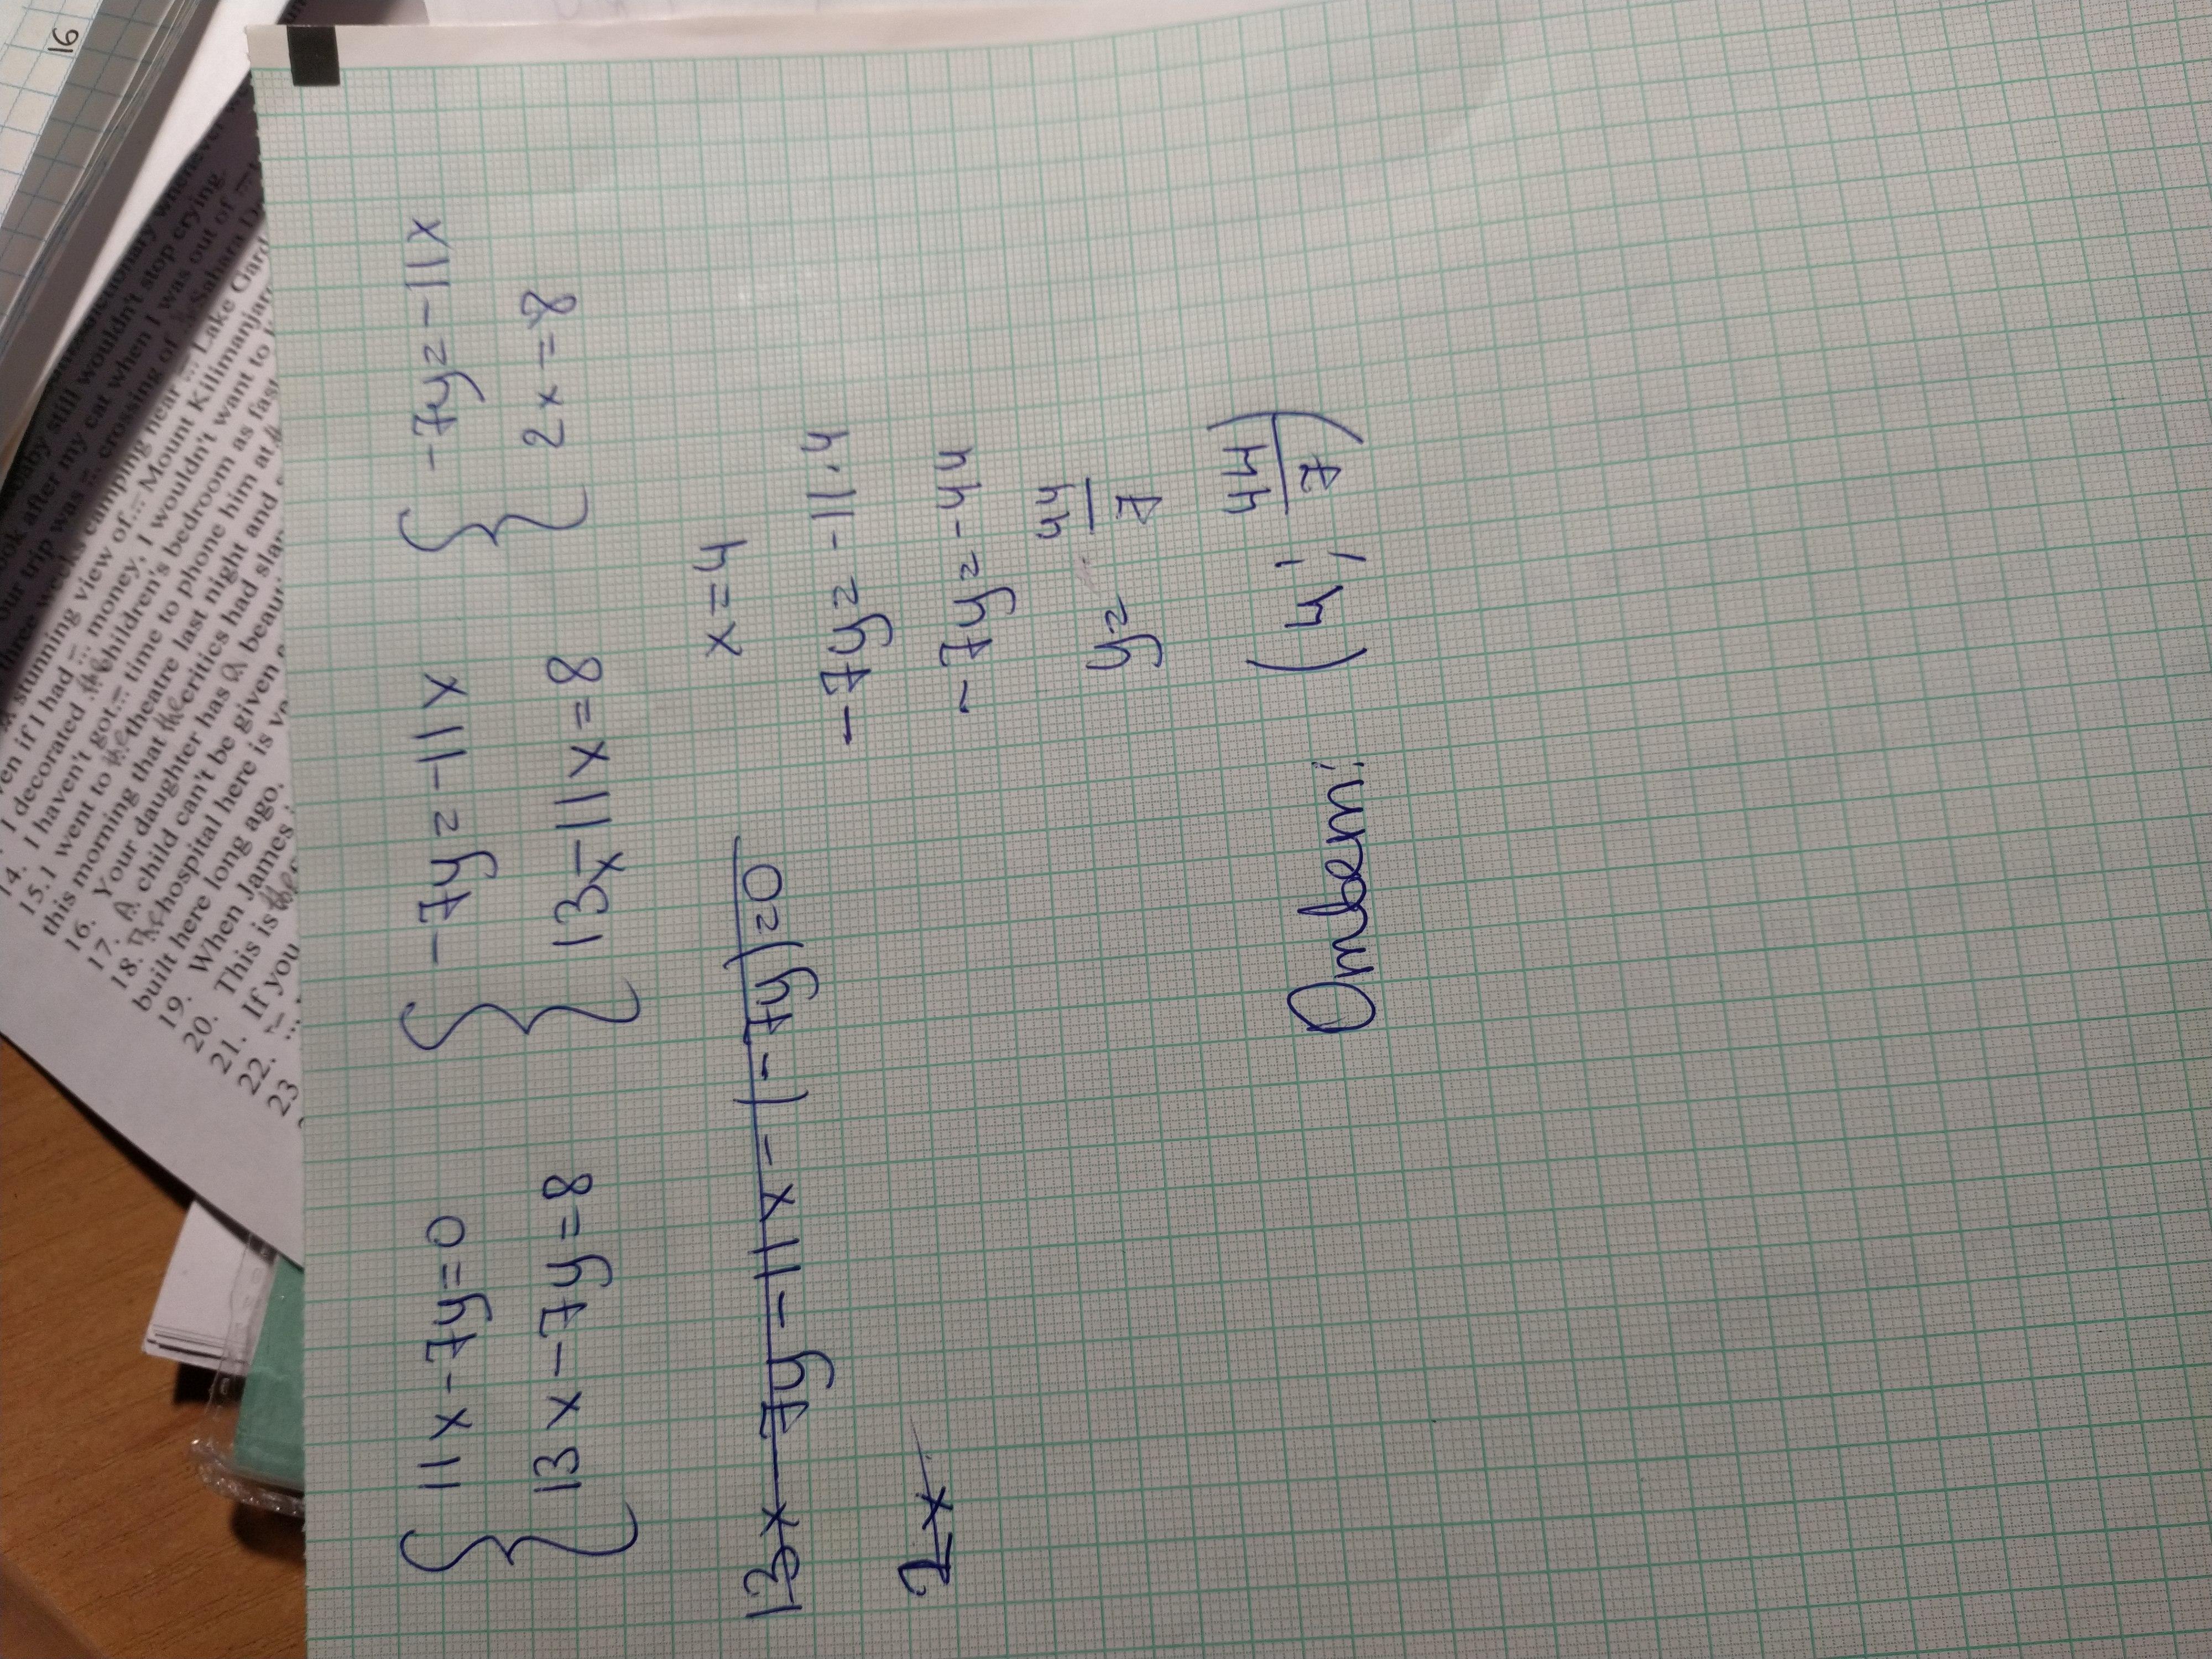 { 11x-7y=0 { -7y=-11x { -7y=-11x
13x-7y=8 13x-11x=8 2x=8
13x-7y-11x-(-7y)=0
x=4
2x
-7y=-11·4
-7y=-44
y=44/7
Ответ: (4; 44/7)
16
14. I haven't got
15. I went to the theatre last night and
this morning that the critics had
16. Your daughter has a
17. A child can't be given
18. The hospital here is
built here long ago.
19. When James
20. This is the
21. If you
22.
23
I decorated the children's bedroom as
money, I wouldn't want to
time to phone him at
stunning view of ... Mount Kilimanjaro
camping near ... Lake
our trip was ... crossing of ... Sahara
look after my cat when I was out of
baby still wouldn't stop crying.